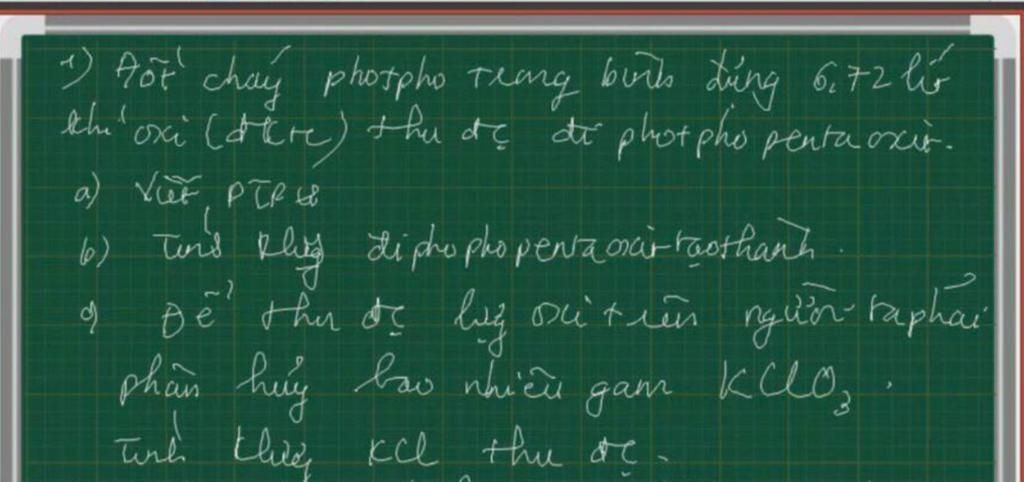 1) Đốt cháy photpho trong bình đựng 6,72 lít
khí oxi (đktc) thu đc đi photpho penta oxit.
a) Viết PTPƯ
b) Tính klượng đi pho pho penta oxit tạo thành.
c) Để thu đc lượng oxi trên người ta phải
phân hủy bao nhiêu gam KClO₃.
Tính klượng KCl thu đc.